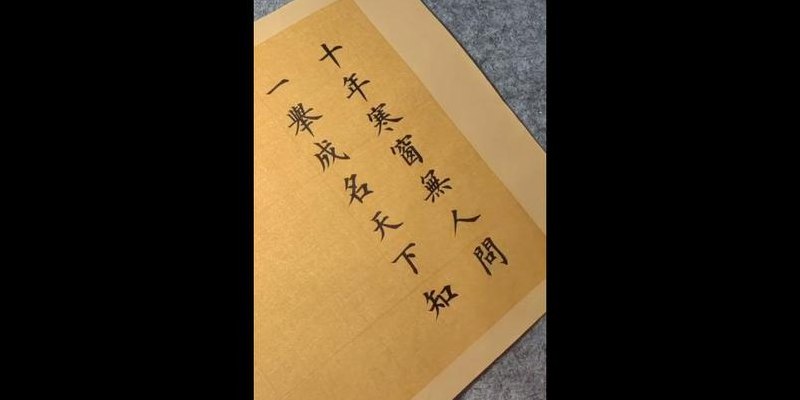 十年寒窗無人問
一舉成名天下知